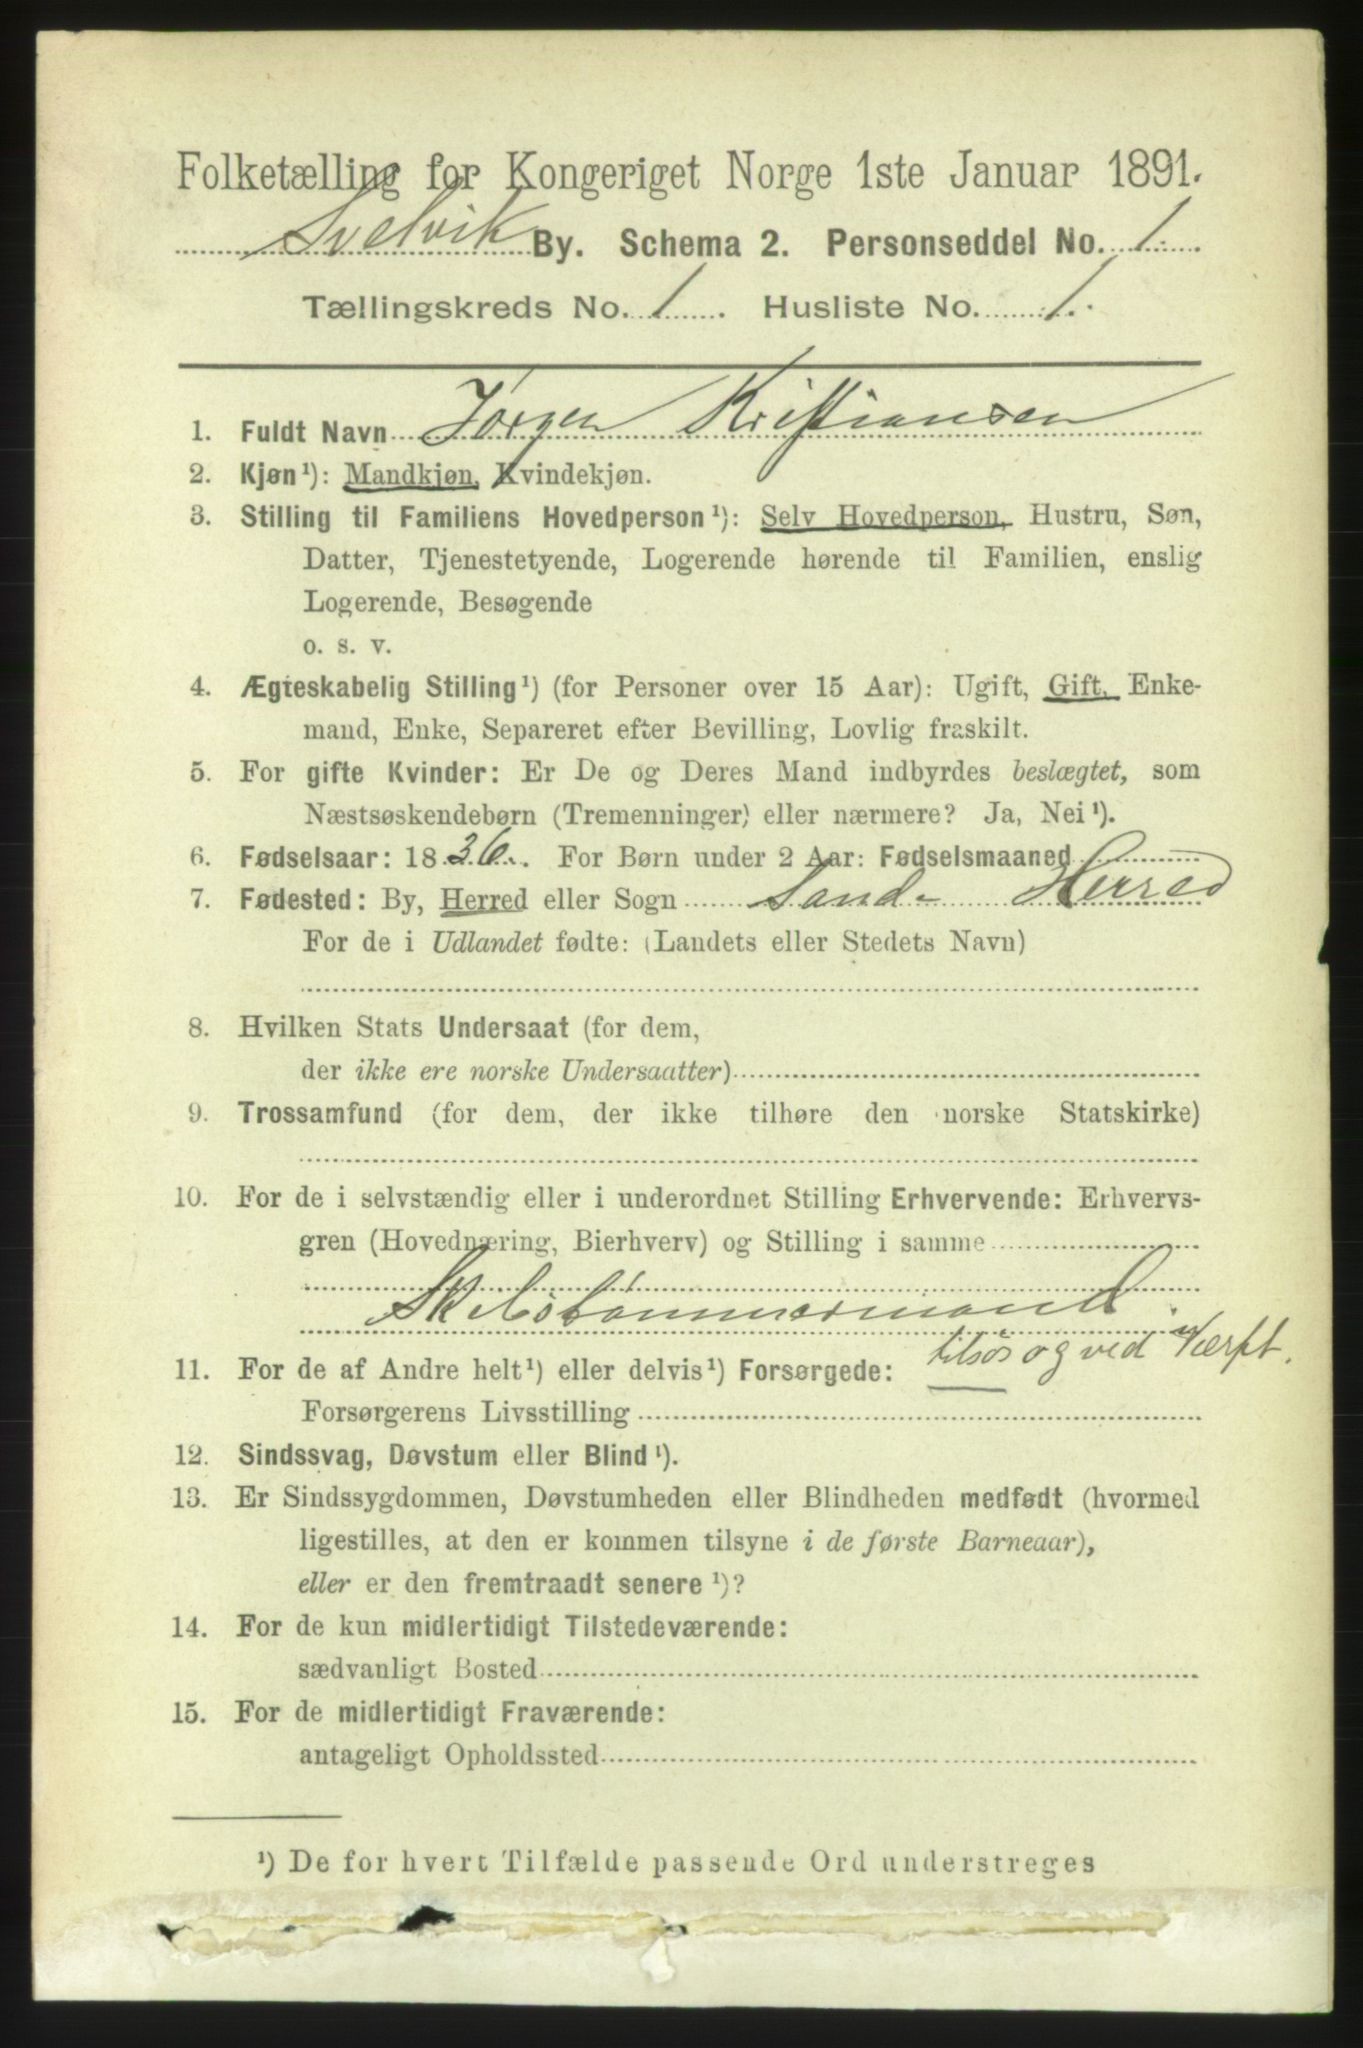 Folketælling for Kongeriget Norge 1ste Januar 1891.
Svelvik By. Schema 2. Personseddel No. 1.
Tællingskreds No. 1. Husliste No. 1.
1. Fuldt Navn Jørgen Kristiansen
2. Kjøn¹): Mandkjøn, Kvindekjøn.
3. Stilling til Familiens Hovedperson¹): Selv Hovedperson, Hustru, Søn,
Datter, Tjenestetyende, Logerende hørende til Familien, enslig
Logerende, Besøgende
o. s. v.
4. Ægteskabelig Stilling¹) (for Personer over 15 Aar): Ugift, Gift, Enke-
mand, Enke, Separeret efter Bevilling, Lovlig fraskilt.
5. For gifte Kvinder: Er De og Deres Mand indbyrdes beslægtet, som
Næstsøskendebørn (Tremenninger) eller nærmere? Ja, Nei¹).
6. Fødselsaar: 1836. For Børn under 2 Aar: Fødselsmaaned
7. Fødested: By, Herred eller Sogn Sande Herred
For de i Udlandet fødte: (Landets eller Stedets Navn)
8. Hvilken Stats Undersaat (for dem,
der ikke ere norske Undersaatter)
9. Trossamfund (for dem, der ikke tilhøre den norske Statskirke)
10. For de i selvstændig eller i underordnet Stilling Erhvervende: Erhvervs-
gren (Hovednæring, Bierhverv) og Stilling i samme
Skibstømmermand.
tilsøs og ved Værft.
11. For de af Andre helt¹) eller delvis¹) Forsørgede:
Forsørgerens Livsstilling
12. Sindssvag, Døvstum eller Blind¹).
13. Er Sindssygdommen, Døvstumheden eller Blindheden medfødt (hvormed
ligestilles, at den er kommen tilsyne i de første Barneaar),
eller er den fremtraadt senere¹)?
14. For de kun midlertidigt Tilstedeværende:
sædvanligt Bosted
15. For de midlertidigt Fraværende:
antageligt Opholdssted
¹) De for hvert Tilfælde passende Ord understreges